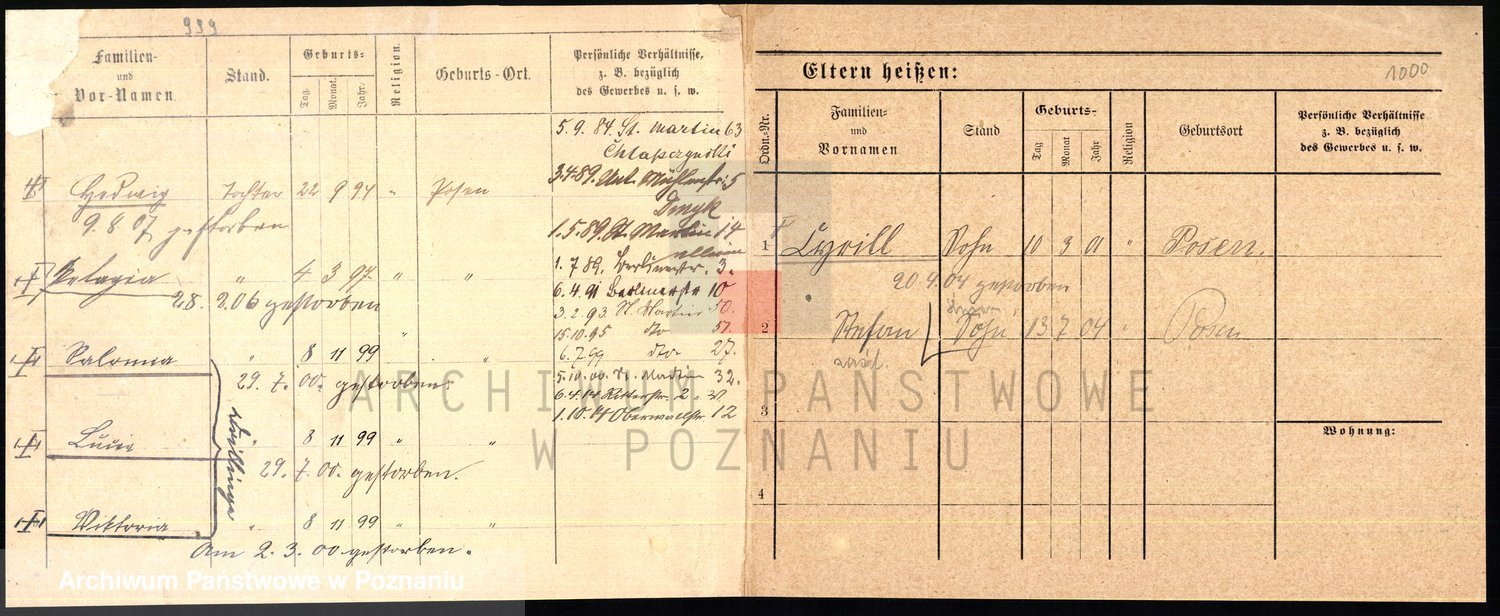 999
Familien-
und
Vor-Namen.
Stand.
Geburts-
Tag.
Monat.
Jahr.
Religion.
Geburts-Ort.
Persönliche Verhältnisse,
z. B. bezüglich
des Gewerbes u. s. w.
5. 9. 84. St. Martin 63
3.4.89. Unt. Mühlenstr. 5
1. 5. 89. St. Martin 14
1. 7 89. Berlinerstr. 3.
6. 4. 91 Berlinerstr 10
3. 2. 93. St. Martin 50.
15. 10. 95 dto 57.
6. 7. 99 dto 27.
5. 10. 00. St. Martin 32.
6. 4. 14 Ritterstr. 2
1. 10. 14 Oberwallstr. 12
Hedwig Tochter 22 9 94 " Posen
9. 8 07 gestorben
Pelagia " 4 3 97 " "
28. 2 06 gestorben
Salomea " 8 11 99 " "
29. 7. 00. gestorben.
" 8 11 99 " "
29. 7. 00. gestorben.
Viktoria " 8 11 99 " "
Am 2. 3. 00 gestorben.
Drillinge
Eltern heißen:
1000
Ordn.-Nr.
Familien-
und
Vornamen
Stand
Geburts-
Tag
Monat
Jahr
Religion
Geburtsort
Persönliche Verhältnisse
z. B. bezüglich
des Gewerbes u. s. w.
1 Cyrill Sohn 10 3 01 " Posen.
20. 4. 04 gestorben
2 Stefan Sohn 13. 7 04 " Posen
3
Wohnung:
4
ARCHIWUM PAŃSTWOWE
W POZNANIU
Archiwum Państwowe w Poznaniu